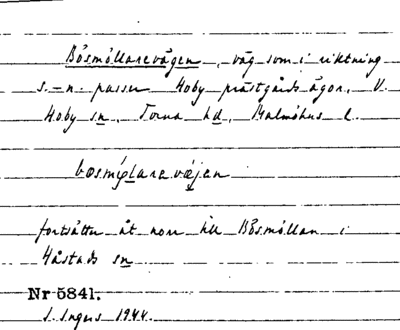 Bösmöllarevägen, väg som i riktning
s.–n. passer Hoby prästgårds ägor, V.
Hoby sn, Torna hd, Malmöhus l.
fortsätter åt norr till Bösmöllan i
Håstads sn
Nr 5841.
I. Ingers 1944.